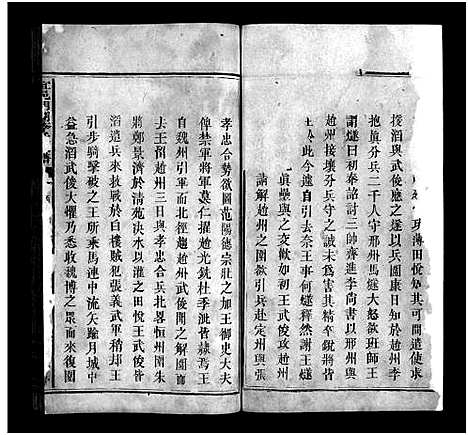 玥薄田悅如其可間遣使求
援滔與武俊應之遂以兵圍康日知於趙州李
抱真分兵二千人守邢州馬燧大怒欲班師王
謂燧曰初奉詔討三帥齊進李尚書以邢州與
趙州接壤分兵守之誠未為害其精卒銳將皆
在此今遽自引去奈王事何燧釋然謝王燧
真壘與之交歡如初王武俊攻趙州
請解趙州之圍欲引兵赴定州與張
孝忠合勢欲圖范陽德宗壯之加王御史大夫
俾禁軍將軍莫仁擢趙光銑杜季泚皆隸焉王
自魏州引軍而北徑趨趙州武俊聞之解圍而
去王留趙州三日與孝忠合兵北畧恒州圍朱
將鄭景濟於清苑決水以灌之田悅王武俊皆
滔遣兵來救戰於白樓賊犯張義武軍稍却王
引步騎擊破之王所乘馬連中流矢踰月城中
益急滔武俊大懼乃悉收魏博之眾而來復圍